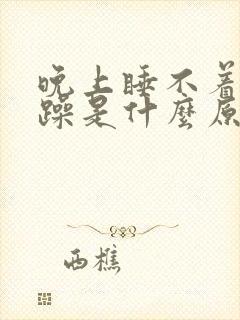 晚上睡不着
躁是什麼原
西樵